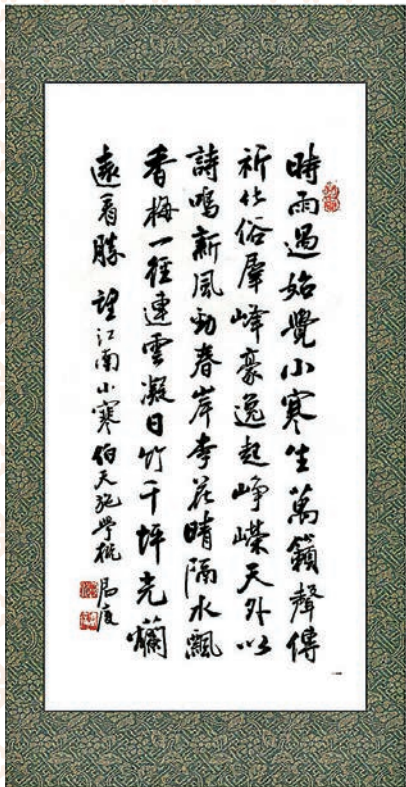 時雨過始覺小寒生萬籟聲傳
祈化俗羣峰豪逸起崢嶸天外以
詩鳴新風勁春岸李花晴隔水飄
香梅一徑連雲凝日竹千坪光斕
遠看勝 望江南小寒 伯天